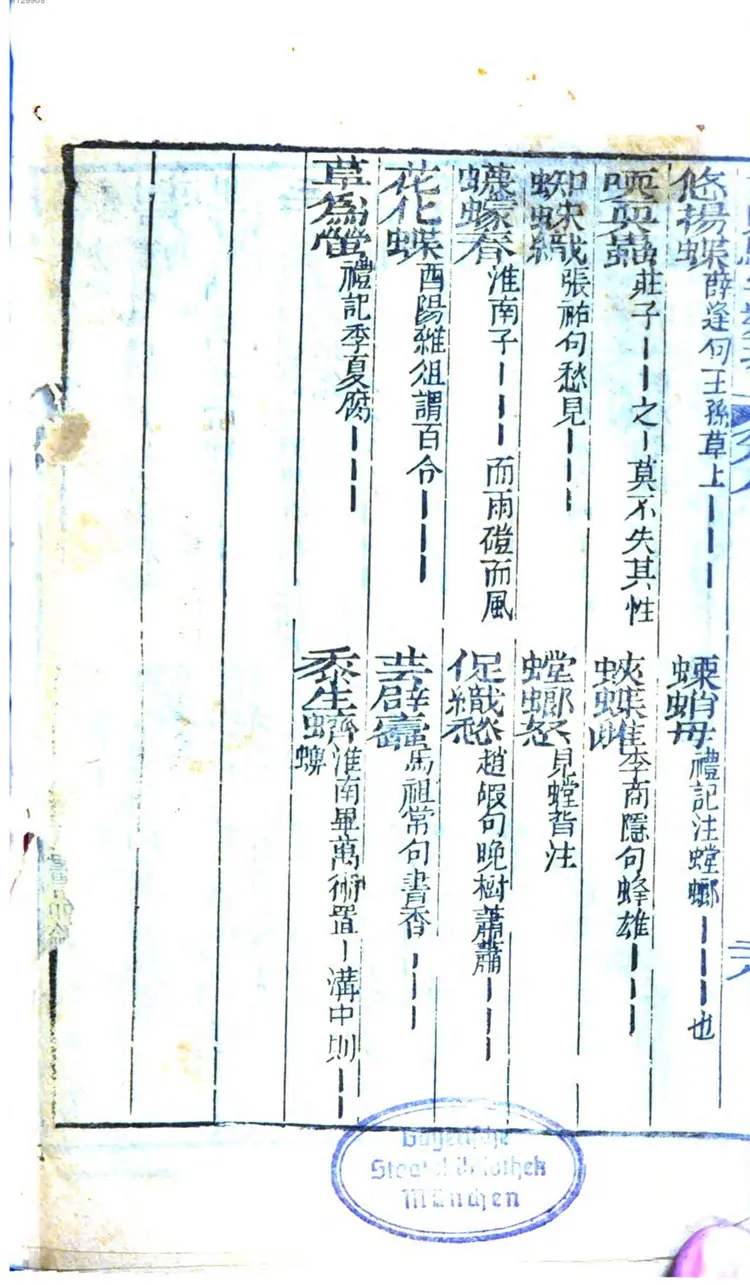 悠揚蝶薛逢句王孫草上｜｜｜ 螵蛸母禮記注螳螂｜｜｜也
喘耎蟲莊子｜｜之｜莫不失其性 蛺蝶雌李商隱句蜂雄｜｜｜
蜘蛛織張祐句愁見｜｜｜ 螳螂怒見螳背注
蠛蠓舂淮南子｜｜｜而雨磑而風 促織愁趙嘏句晚樹蕭蕭｜｜｜
花化蝶酉陽雜俎謂百合｜｜｜ 芸辟蠹馬祖常句書香｜｜｜
草為螢禮記季夏腐｜｜｜ 黍生蠐淮南畢萬術置｜溝中則｜｜
Bayerische
Staatsbibliothek
München